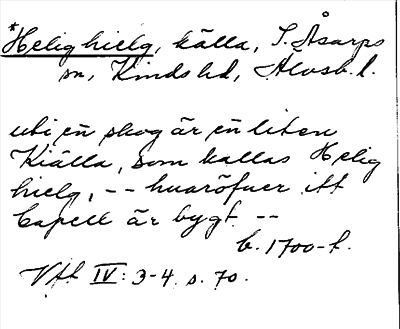 *Helig hielg, källa, S. Åsarps
sn, Kinds hd, Älvsb. l.
uti en skog är en liten
Kiälla, som kallas Helig
hielg, -- huaröfuer itt
Capell är bygt --
b. 1700-t.
Vtt IV: 3-4 s. 70.